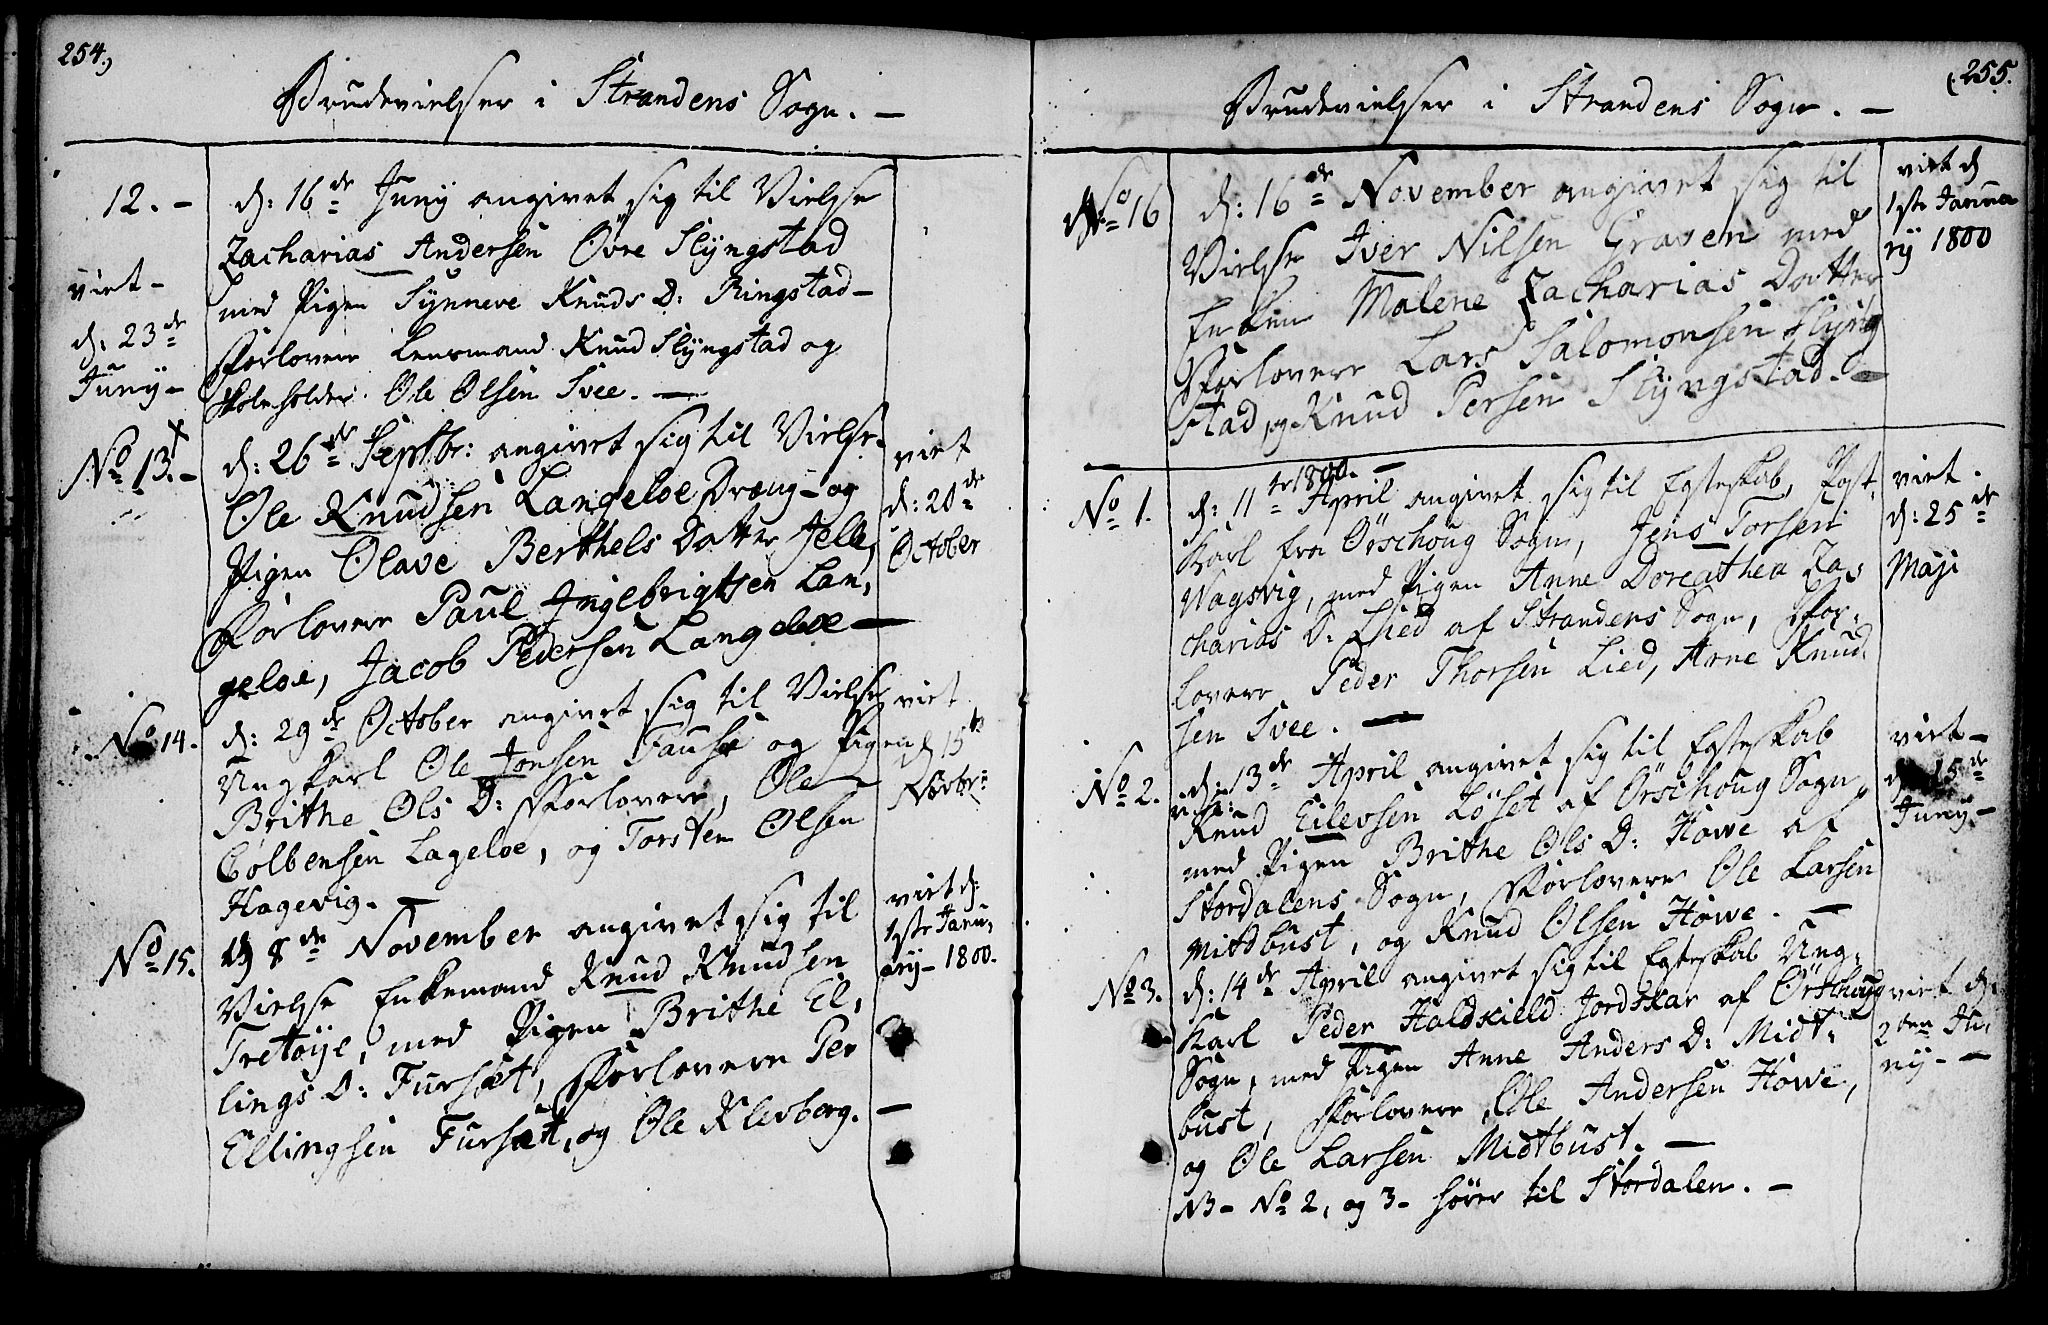 254.)
Brudevielser i Strandens Sogn. -
12. -
d: 16de Juny angivet sig til Vielse
Zacharias Andersen Øvre Slyngstad
med Pigen Synneve Knuds D: Ringstad -
Forlovere Lensmand Knud Slyngstad og
Skoleholder Ole Olsen Svee. -
viet -
d: 23de
Juny -
No 13. -
d: 26de Septbr: angivet sig til Vielse
Ole Knudsen Langeloe Dreng - og
Pigen Olave Berthels Datter Jelle,
Forlovere Paul Ingebrigtsen Lan,
geloe, Jacob Pedersen Langeloe -
viet
d: 20de
October
No 14.
d: 29de October angivet sig til Vielse
Ungkarl Ole Jonsen Fause og Pigen
Brithe Ols D: Forlovere, Ole
Colbensen Lageloe, og Torsten Olsen
Hagevig. -
viet
d 15te
Novbr:
No 15.
d 8de November angivet sig til
Vielse Enkemand Knud Knudsen
Tretøye, med Pigen Brithe El,
lings D: Fursæt, Forlovere Per
Ellingsen Fursæt, og Ole Klevberg. -
viet d:
1ste Janu,
ary - 1800.
(255.
Brudevielser i Strandens Sogn. -
No 16
d: 16de November angivet sig til
Vielse Iver Nilsen Graven med
Enken Malene Zacharias Datter
Forlovere Lars Salomonsen Slyng
stad, og Knud Persen Slyngstad. -
viet d
1ste Janua
ry 1800
1800. -
No 1.
d: 11te April angivet sig til Egteskab,
Karl fra Ørschoug Sogn, Jens Torsen
Vagsvig, med Pigen Anne Doreathea Za,
charias D: Lied af Strandens Sogn, For,
lovere Peder Thorsen Lied, Arne Knud,
sen Svee. -
viet.
d: 25de
Maji
No 2.
d: 13de April angivet sig til Egteskab
Knud Eilevsen Løset af Ørschoug Sogn,
med Pigen Brithe Ols D: Howe af
Stordalens Sogn, Forlovere Ole Larsen
Midtbust, og Knud Olsen Howe. -
viet -
d 15de
Juny -
No 3.
d: 14de April angivet sig til Egteskab Ung,
Karl Peder Haldkield Jordskar af Ørschoug
Sogn, med Pigen Anne Anders D: Midt,
bust, Forlovere Ole Andersen Howe,
og Ole Larsen Midtbust. -
viet d:
2den Ju,
ny - -
NB - No 2, og 3 - hører til Stordalen. -